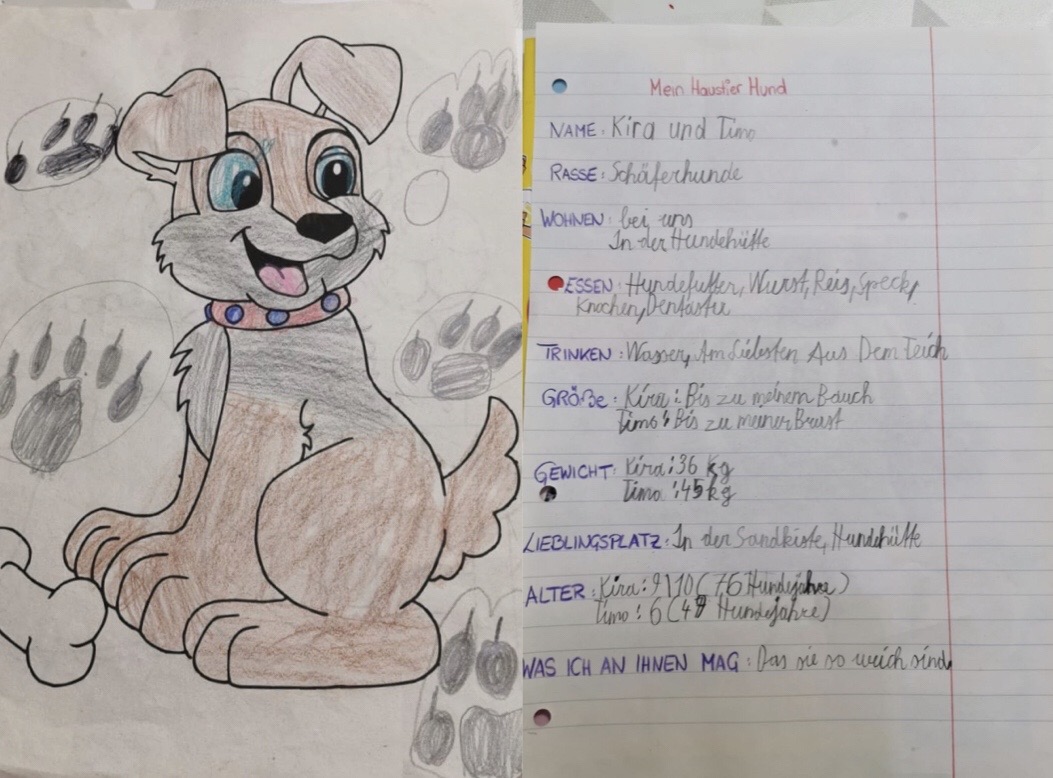 Mein Haustier Hund
NAME: Kira und Timo
RASSE: Schäferhunde
WOHNEN: bei uns
In der Hundehütte
ESSEN: Hundefutter, Wurst, Reis, Speck,
Knochen, Dentastix
TRINKEN: Wasser, Am Liebsten Aus Dem Teich
GRÖßE: Kira: Bis zu meinem Bauch
Timo: Bis zu meiner Brust
GEWICHT: Kira: 36 kg
Timo: 45 kg
LIEBLINGSPLATZ: In der Sandkiste, Hundehütte
ALTER: Kira: 9|10 (76 Hundejahre)
Timo: 6 (47 Hundejahre)
WAS ICH AN IHNEN MAG: Das sie so weich sind